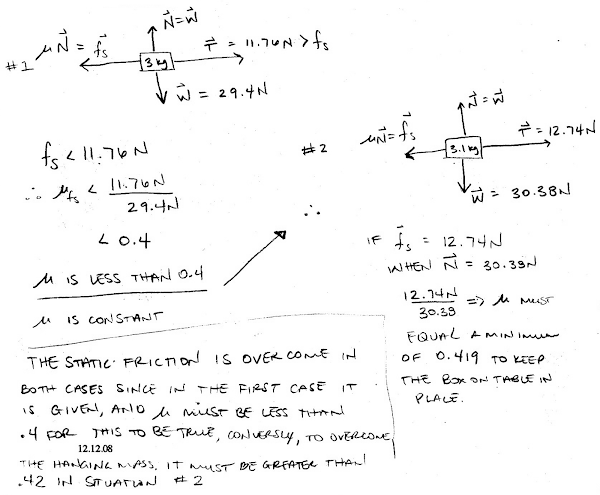 #1
μN⃗ = f⃗s
N⃗=W⃗
3 kg
T⃗ = 11.76N > fs
W⃗ = 29.4N
fs < 11.76N
∴ μfs < 11.76N
29.4N
< 0.4
μ IS LESS THAN 0.4
μ IS CONSTANT
#2
μN⃗=f⃗s
N⃗=W⃗
3.1 kg
T⃗ = 12.74N
W⃗ = 30.38N
∴
IF f⃗s = 12.74N
WHEN N⃗ = 30.38N
12.74N => μ MUST
30.38
EQUAL A MINIMUM
OF 0.419 TO KEEP
THE BOX ON TABLE IN
PLACE.
THE STATIC FRICTION IS OVERCOME IN
BOTH CASES SINCE IN THE FIRST CASE IT
IS GIVEN, AND μ MUST BE LESS THAN
.4 FOR THIS TO BE TRUE, CONVERSLY, TO OVERCOME
12.12.08
THE HANGING MASS, IT MUST BE GREATER THAN
.42 IN SITUATION #2